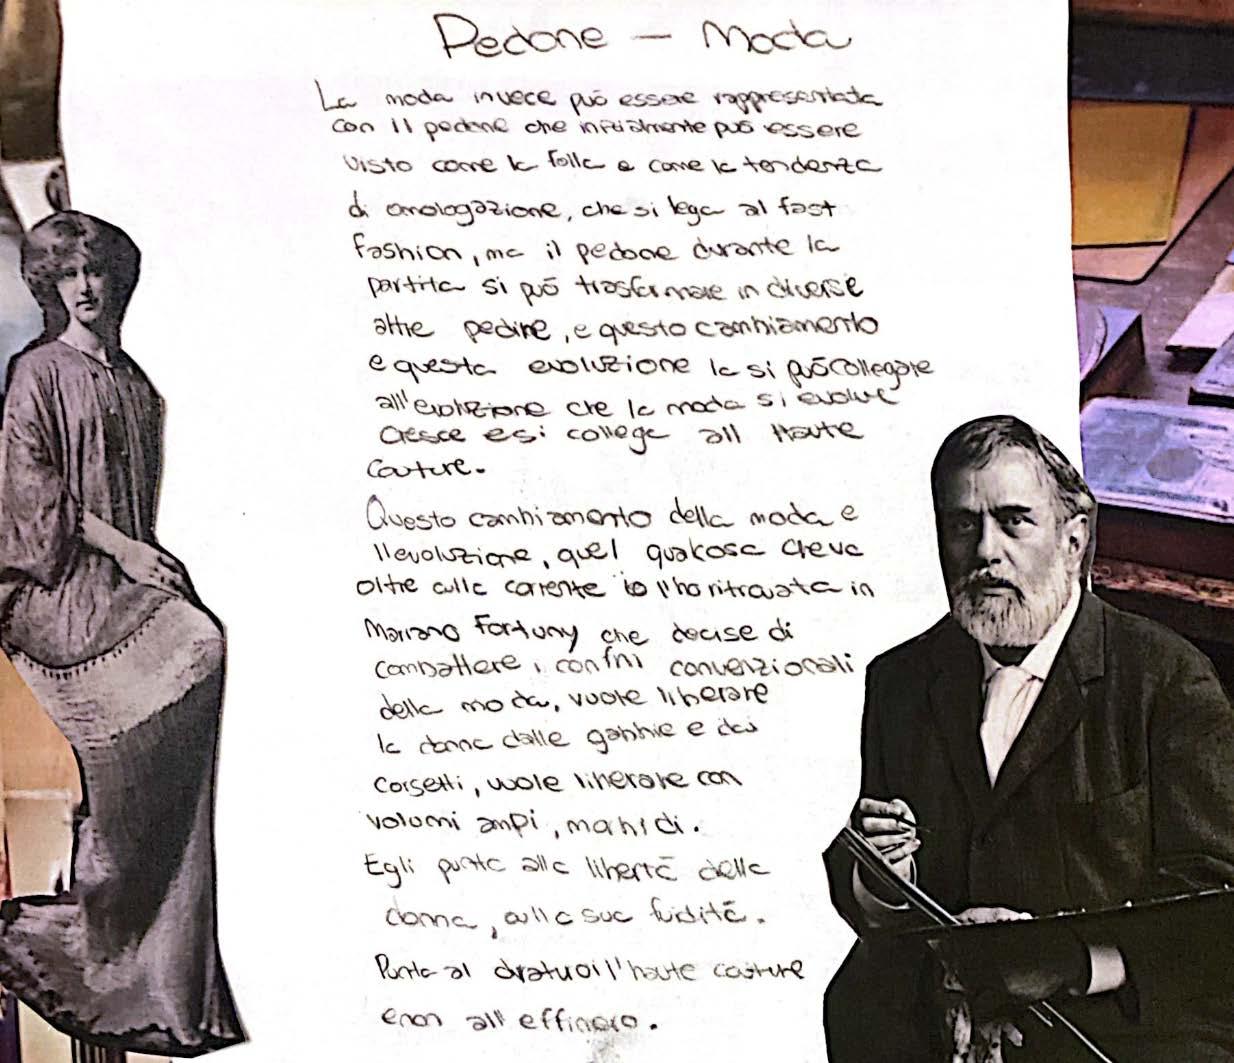 Pedone – Moda
La moda invece può essere rappresentata
con il pedone che inizialmente può essere
visto come la folla e come la tendenza
di omologazione, che si lega al fast
fashion, ma il pedone durante la
partita si può trasformare in diverse
altre pedine, e questo cambiamento
e questa evoluzione la si può collegare
all'evoluzione che la moda si evolve
cresce e si collega all Haute
Couture.
Questo cambiamento della moda e
l'evoluzione, quel qualcosa che va
oltre alla corrente io l'ho ritrovata in
Mariano Fortuny che decise di
combattere i confini convenzionali
della moda, vuole liberare
la donna dalle gabbie e dai
corsetti, vuole liberare con
volumi ampi, morbidi.
Egli punta alla libertà della
donna, alla sua fuidità.
Punta al l'haute couture
e non all'effimero.